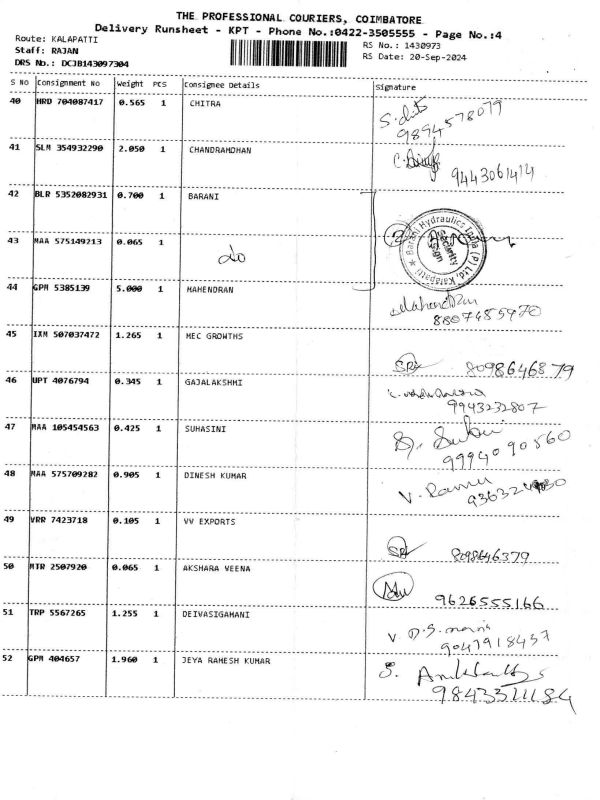 THE PROFESSIONAL COURIERS, COIMBATORE
Delivery Runsheet - KPT - Phone No.:0422-3505555 - Page No.:4
Route: KALAPATTI
RS No.: 1430973
Staff: RAJAN
RS Date: 20-Sep-2024
DRS No.: DCJB143097304
S NO Consignment No Weight PCS Consignee Details Signature
40 HRD 704087417 0.565 1 CHITRA
9894578079
41 SLM 354932290 2.050 1 CHANDRAMOHAN
9443061414
42 BLR 5352082931 0.700 1 BARANI
Barani Hydraulics India (P) Ltd, Kalapatti
Security Sign
43 MAA 575149213 0.065 1 do
44 GPM 5385139 5.000 1 MAHENDRAN
Mahendran
8807485970
45 IXM 507037472 1.265 1 MEC GROWTHS
8098646879
46 UPT 4076794 0.345 1 GAJALAKSHMI
9943232807
47 MAA 105454563 0.425 1 SUHASINI
9994090560
48 MAA 575709282 0.905 1 DINESH KUMAR
49 VRR 7423718 0.105 1 VV EXPORTS
8098646379
50 MTR 2507920 0.065 1 AKSHARA VEENA
9626555166
51 TRP 5567265 1.255 1 DEIVASIGAMANI
9047918437
52 GPM 404657 1.960 1 JEYA RAMESH KUMAR